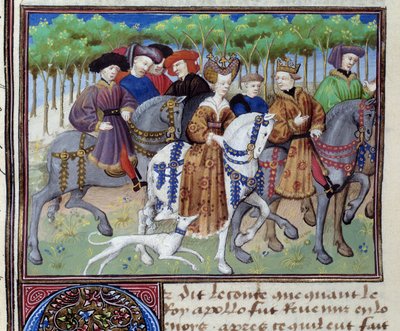 Or dit le conte que quant le
Roy apollo fut Reuenu en lo
nois. apres ce quil eut fait